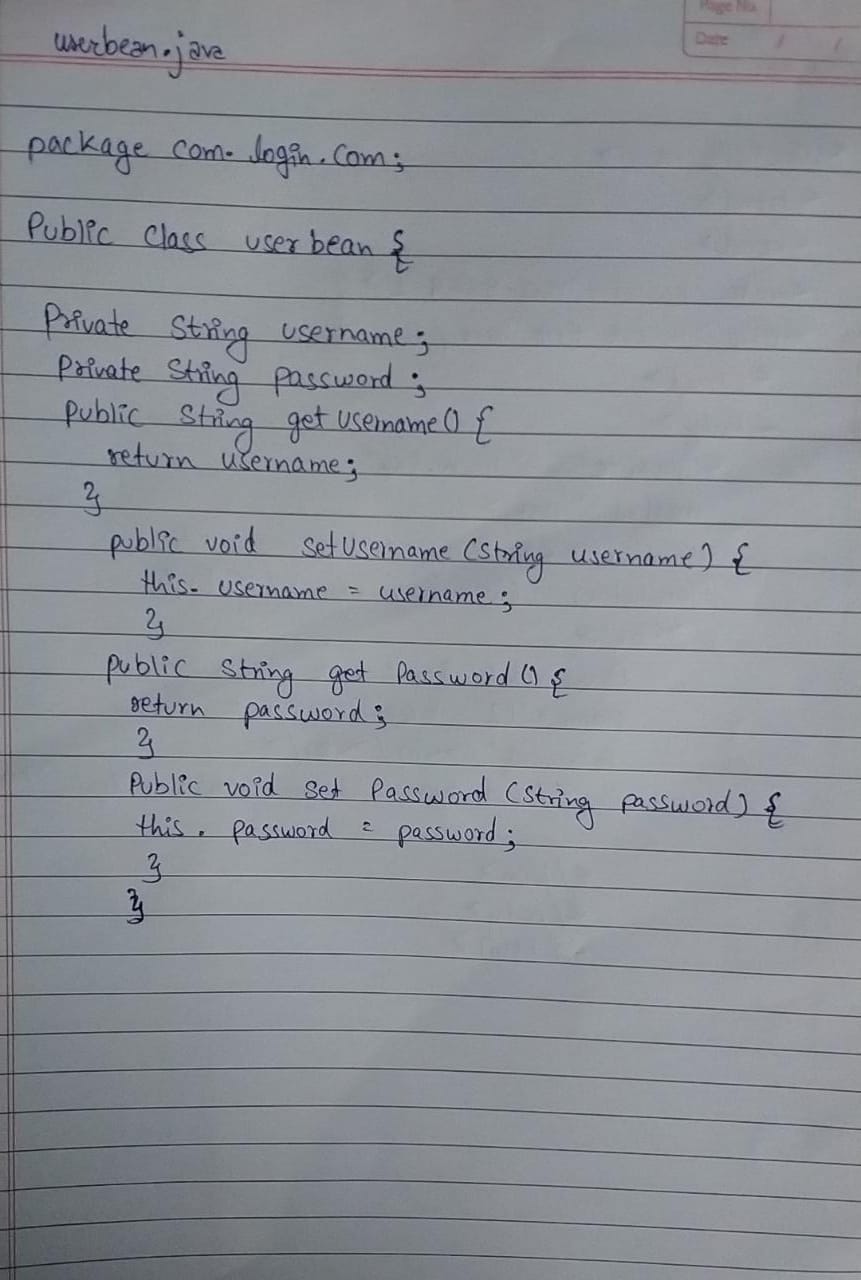 Page No.
Date / /
userbean.java
package com.login.com;
Public class userbean {
Private String username;
Private String password;
public String getUsername() {
return username;
}
public void setUsername (String username) {
this.username = username;
}
public String get Password () {
return password;
}
Public void set Password (String password) {
this.password = password;
}
}